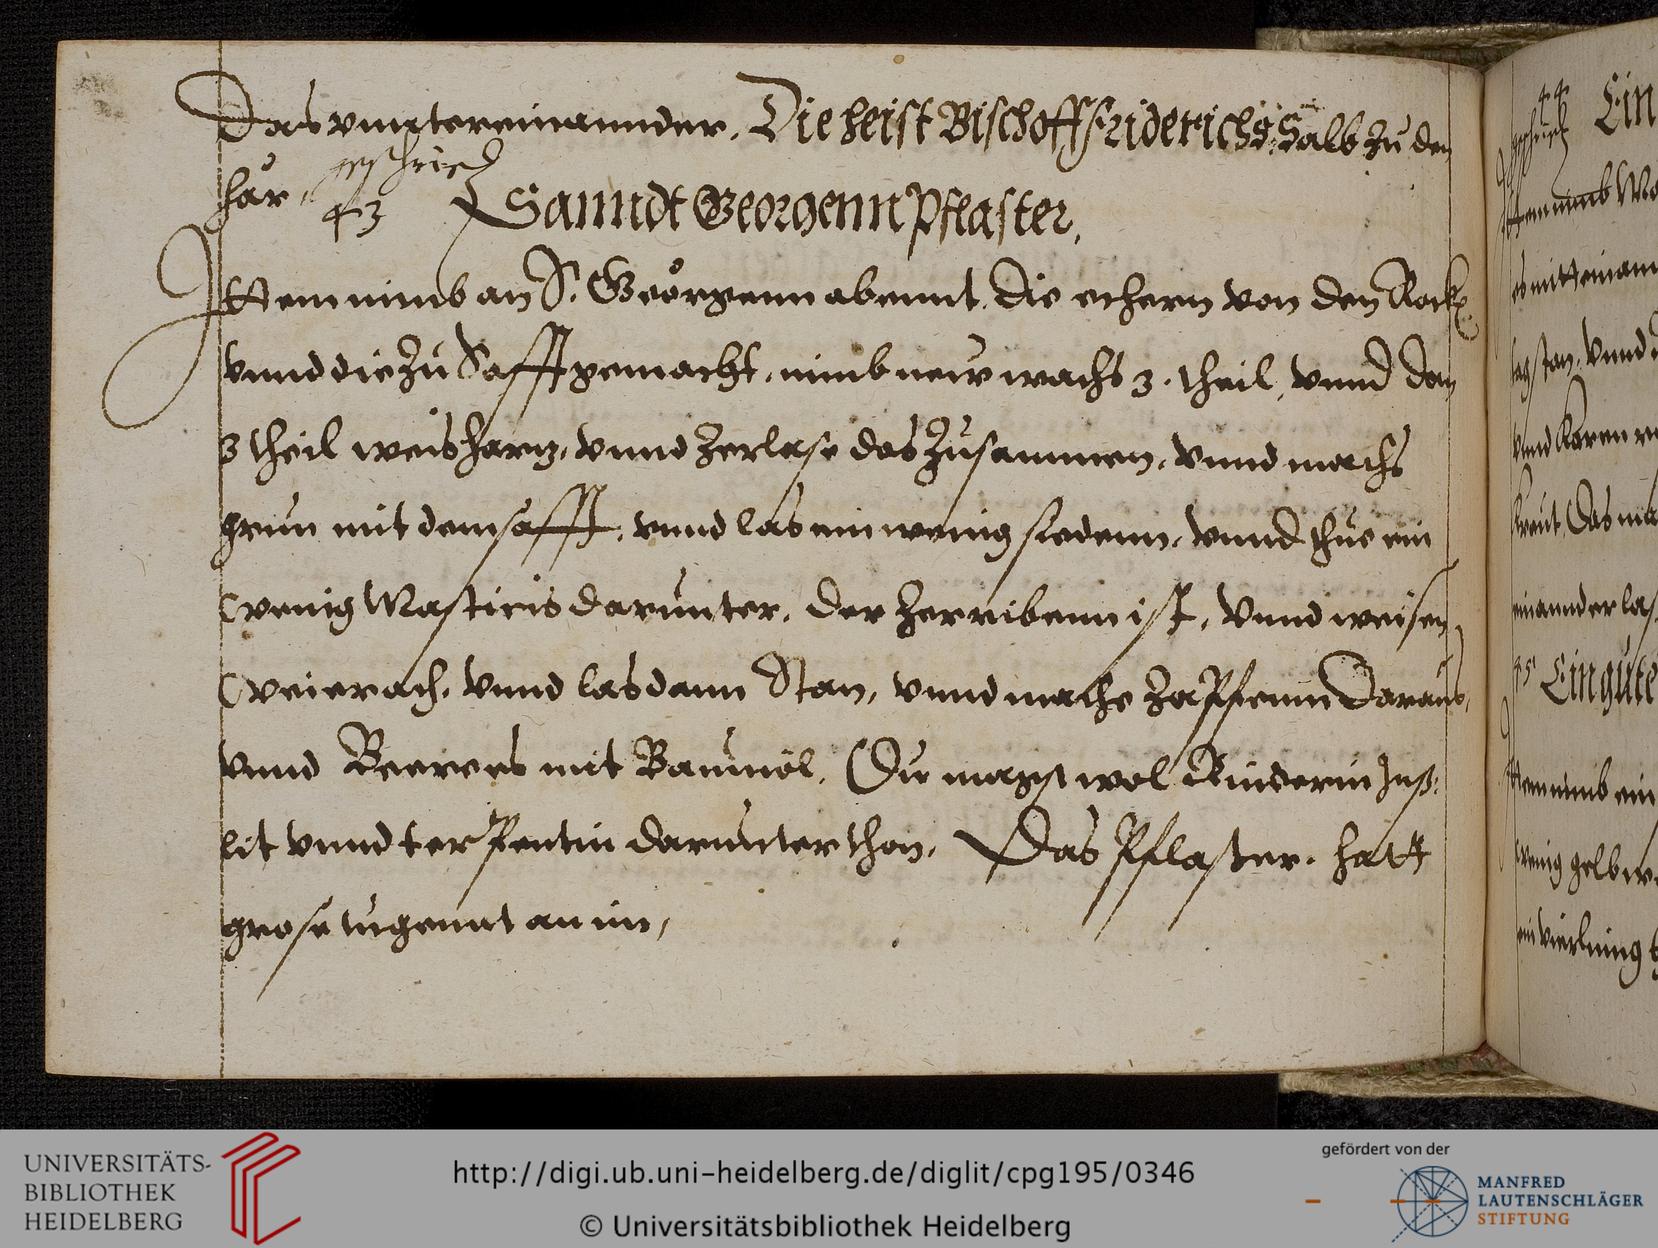 Das vnntereinannder. Die heist Bischoff Friderichs Salb zu den
har. geschrieb
43 Sanndt Georgenn Pflaster,
Ittem nimb an S. Georgenn abennt. die echern von den Rock
vnnd die zu Safft gemacht, nimb new wachs 3. theil, vnnd dan
3 theil weis hartz, vnnd Zerlase das Zusammen, vnnd machs
grun mit dem safft, vnnd las ein wenig siedenn, vnnd thue ein
wenig Masticis darunter, der Zerribenn ist, vnnd weisen
weierach, vnnd las dann Stan, vnnd mache Zapffenn Daraus,
vnnd Beeres mit Baumöl, Du magst wol Rinderin Jnß:
lit vnnd terpentin darunter thon, Das Pflaster. hatt
grose tugennt an im,
44 Ein
Ittem nimb
es mitteinann
vnnd
vnnd
kraut, Das
einannder las
45 Ein gute
Ittem nimb ein
wenig gelb
ein vierlning
UNIVERSITÄTS-
BIBLIOTHEK
HEIDELBERG
http://digi.ub.uni-heidelberg.de/diglit/cpg195/0346
© Universitätsbibliothek Heidelberg
gefördert von der
MANFRED
LAUTENSCHLÄGER
STIFTUNG